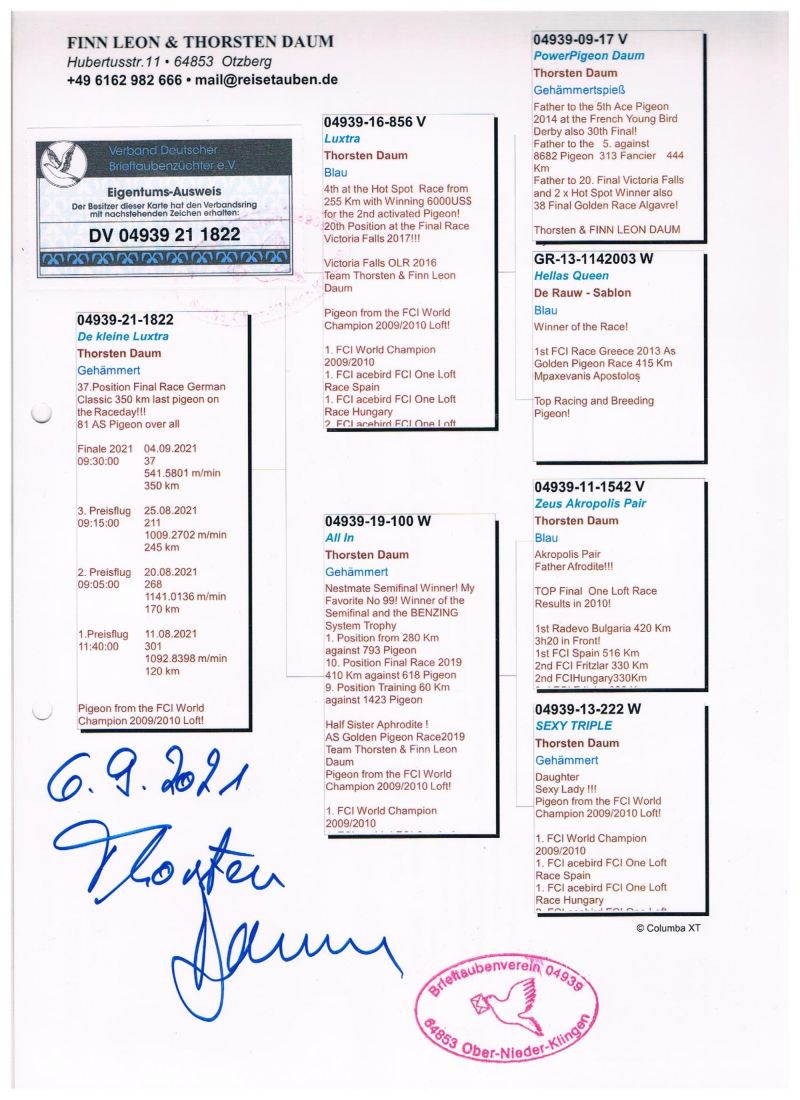 FINN LEON & THORSTEN DAUM
Hubertusstr.11 • 64853 Otzberg
+49 6162 982 666 • mail@reisetauben.de
Verband Deutscher
Brieftaubenzüchter e.V.
Eigentums-Ausweis
Der Besitzer dieser Karte hat den Verbandsring
mit nachstehenden Zeichen erhalten:
DV 04939 21 1822
04939-21-1822
De kleine Luxtra
Thorsten Daum
Gehämmert
37.Position Final Race German
Classic 350 km last pigeon on
the Raceday!!!
81 AS Pigeon over all
Finale 2021 04.09.2021
09:30:00 37
541.5801 m/min
350 km
3. Preisflug 25.08.2021
09:15:00 211
1009.2702 m/min
245 km
2. Preisflug 20.08.2021
09:05:00 268
1141.0136 m/min
170 km
1.Preisflug 11.08.2021
11:40:00 301
1092.8398 m/min
120 km
Pigeon from the FCI World
Champion 2009/2010 Loft!
04939-16-856 V
Luxtra
Thorsten Daum
Blau
4th at the Hot Spot Race from
255 Km with Winning 6000US$
for the 2nd activated Pigeon!
20th Position at the Final Race
Victoria Falls 2017!!!
Victoria Falls OLR 2016
Team Thorsten & Finn Leon
Daum
Pigeon from the FCI World
Champion 2009/2010 Loft!
1. FCI World Champion
2009/2010
1. FCI acebird FCI One Loft
Race Spain
1. FCI acebird FCI One Loft
Race Hungary
2. FCI acebird FCI One Loft
04939-19-100 W
All In
Thorsten Daum
Gehämmert
Nestmate Semifinal Winner! My
Favorite No 99! Winner of the
Semifinal and the BENZING
System Trophy
1. Position from 280 Km
against 793 Pigeon
10. Position Final Race 2019
410 Km against 618 Pigeon
9. Position Training 60 Km
against 1423 Pigeon
Half Sister Aphrodite !
AS Golden Pigeon Race2019
Team Thorsten & Finn Leon
Daum
Pigeon from the FCI World
Champion 2009/2010 Loft!
1. FCI World Champion
2009/2010
04939-09-17 V
PowerPigeon Daum
Thorsten Daum
Gehämmertspieß
Father to the 5th Ace Pigeon
2014 at the French Young Bird
Derby also 30th Final!
Father to the 5. against
8682 Pigeon 313 Fancier 444
Km
Father to 20. Final Victoria Falls
and 2 x Hot Spot Winner also
38 Final Golden Race Algavre!
Thorsten & FINN LEON DAUM
GR-13-1142003 W
Hellas Queen
De Rauw - Sablon
Blau
Winner of the Race!
1st FCI Race Greece 2013 As
Golden Pigeon Race 415 Km
Mpaxevanis Apostolos
Top Racing and Breeding
Pigeon!
04939-11-1542 V
Zeus Akropolis Pair
Thorsten Daum
Blau
Akropolis Pair
Father Afrodite!!!
TOP Final One Loft Race
Results in 2010!
1st Radevo Bulgaria 420 Km
3h20 in Front!
1st FCI Spain 516 Km
2nd FCI Fritzlar 330 Km
2nd FCIHungary330Km
04939-13-222 W
SEXY TRIPLE
Thorsten Daum
Gehämmert
Daughter
Sexy Lady !!!
Pigeon from the FCI World
Champion 2009/2010 Loft!
1. FCI World Champion
2009/2010
1. FCI acebird FCI One Loft
Race Spain
1. FCI acebird FCI One Loft
Race Hungary
© Columba XT
6.9.2021
Thorsten
Daum
Brieftaubenverein 04939
64853 Ober-Nieder-Klingen